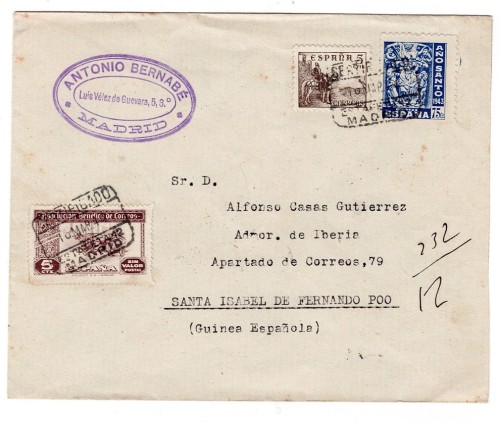 ANTONIO BERNABÉ
Luis Vélez de Guevara, 5, 3.°
MADRID
ESPAÑA
5
CTS
CORREOS
AÑO SANTO
1943
75
ESPAÑA
MADRID
Sr. D.
Alfonso Casas Gutierrez
Admor. de Iberia
Apartado de Correos,79
SANTA ISABEL DE FERNANDO POO
(Guinea Española)
232
12
CERTIFICADO
MADRID
5
CTS
ESPAÑA
SIN VALOR
POSTAL